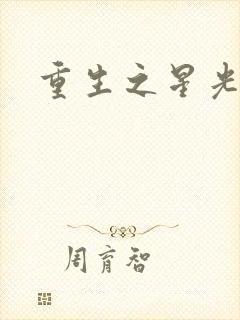 重生之星光
周育智